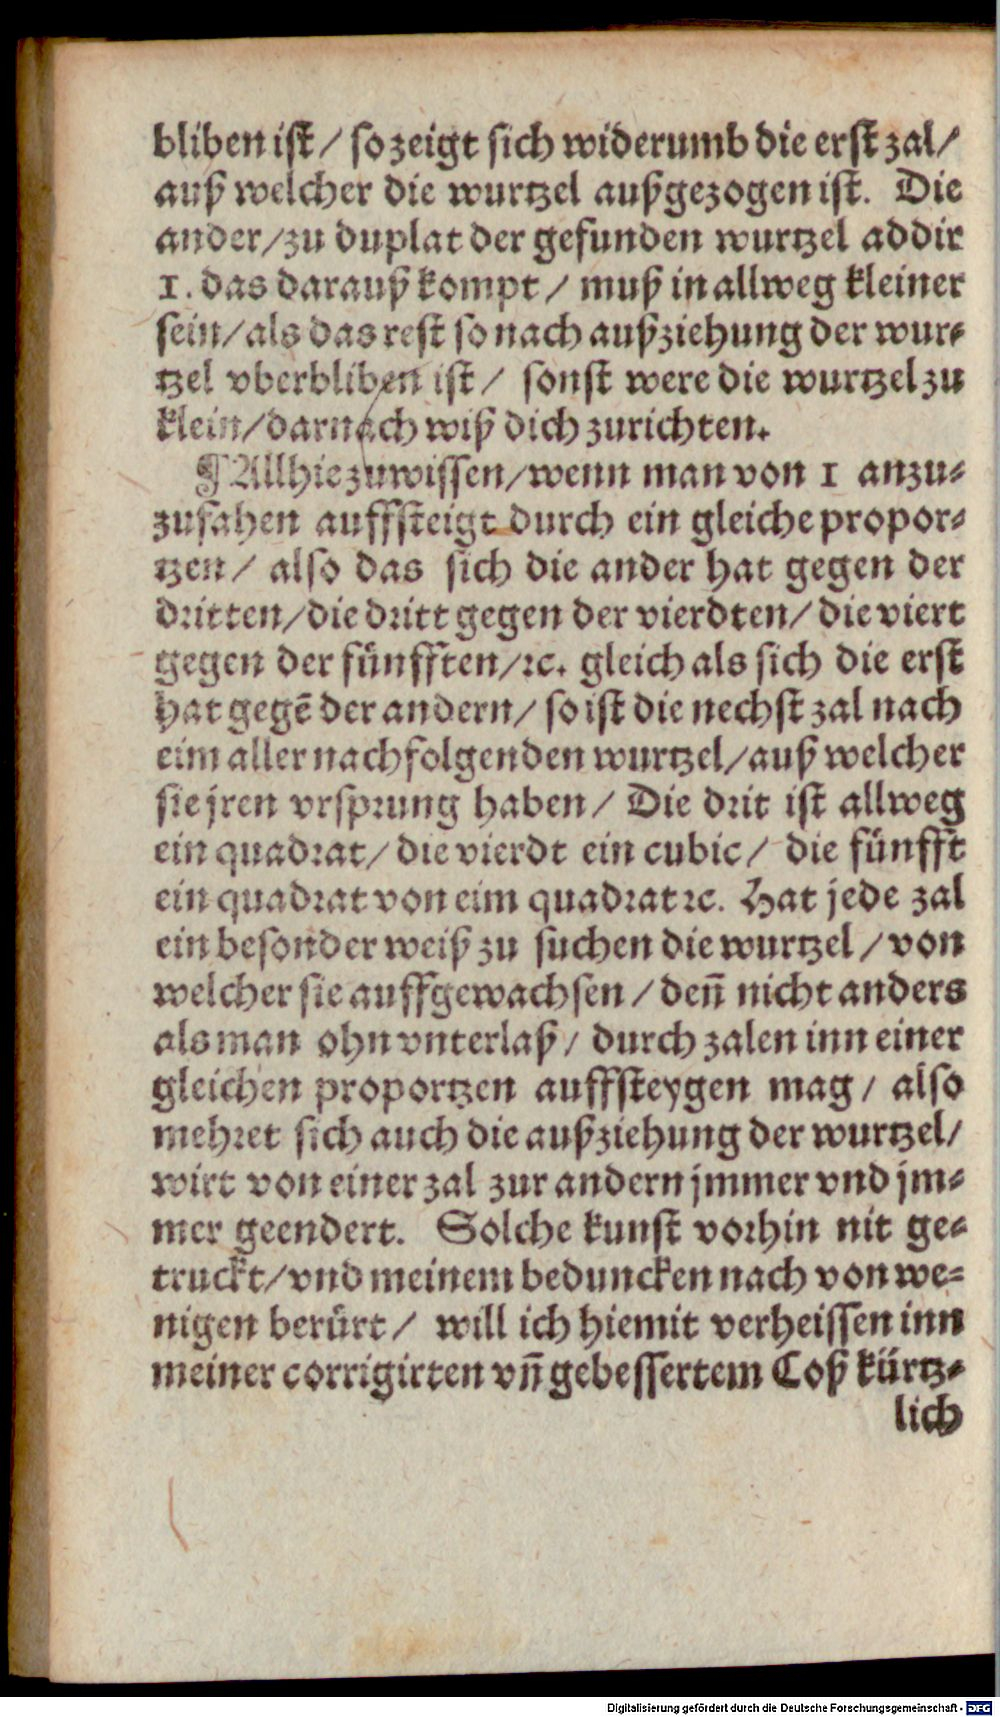 bliben ist / so zeigt sich widerumb die erst zal/
auß welcher die wurtzel außgezogen ist. Die
ander/zu duplat der gefunden wurtzel addir
1. das darauß kompt / muß in allweg kleiner
sein/als das rest so nach außziehung der wur⸗
tzel vberbliben ist / sonst were die wurtzel zu
klein/darnach wiß dich zurichten.
¶ Allhie zuwissen/wenn man von 1 anzu⸗
zufahen auffsteigt durch ein gleiche propor⸗
tzen / also das sich die ander hat gegen der
dritten/die dritt gegen der vierdten/die viert
gegen der fünfften/ꝛc. gleich als sich die erst
hat gegē der andern/ so ist die nechst zal nach
eim aller nachfolgenden wurtzel/auß welcher
sie jren vrsprung haben / Die drit ist allweg
ein quadrat/ die vierdt ein cubic / die fünfft
ein quadrat von eim quadrat ꝛc. Hat jede zal
ein besonder weiß zu suchen die wurtzel / von
welcher sie auffgewachsen / deñ nicht anders
als man ohn vnterlaß / durch zalen inn einer
gleichen proportzen auffsteygen mag / also
mehret sich auch die außziehung der wurtzel/
wirt von einer zal zur andern jmmer vnd jm⸗
mer geendert. Solche kunst vorhin nit ge⸗
truckt/vnd meinem beduncken nach von we⸗
nigen berürt / will ich hiemit verheissen inn
meiner corrigirten vñ gebessertem Coß kürtz⸗
lich
Digitalisierung gefördert durch die Deutsche Forschungsgemeinschaft - DFG